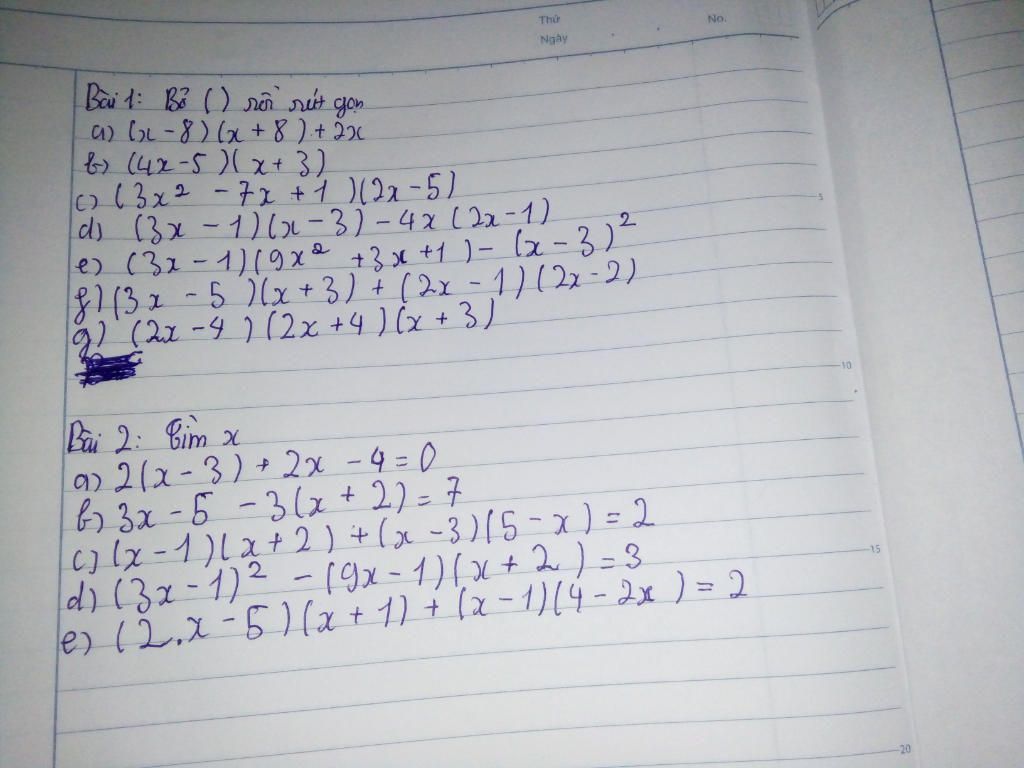 Thứ
No.
Ngày
Bài 1: Bỏ ( ) rồi rút gọn
a) (x - 8)(x + 8) + 2x
b) (4x - 5)(x + 3)
c) (3x² - 7x + 1)(2x - 5)
d) (3x - 1)(x - 3) - 4x(2x - 1)
e) (3x - 1)(9x² + 3x + 1) - (x - 3)²
f) (3x - 5)(x + 3) + (2x - 1)(2x - 2)
g) (2x - 4)(2x + 4)(x + 3)
Bài 2: Tìm x
a) 2(x - 3) + 2x - 4 = 0
b) 3x - 5 - 3(x + 2) = 7
c) (x - 1)(x + 2) + (x - 3)(5 - x) = 2
d) (3x - 1)² - (9x - 1)(x + 2) = 3
e) (2.x - 5)(x + 1) + (x - 1)(4 - 2x) = 2
5
10
15
20